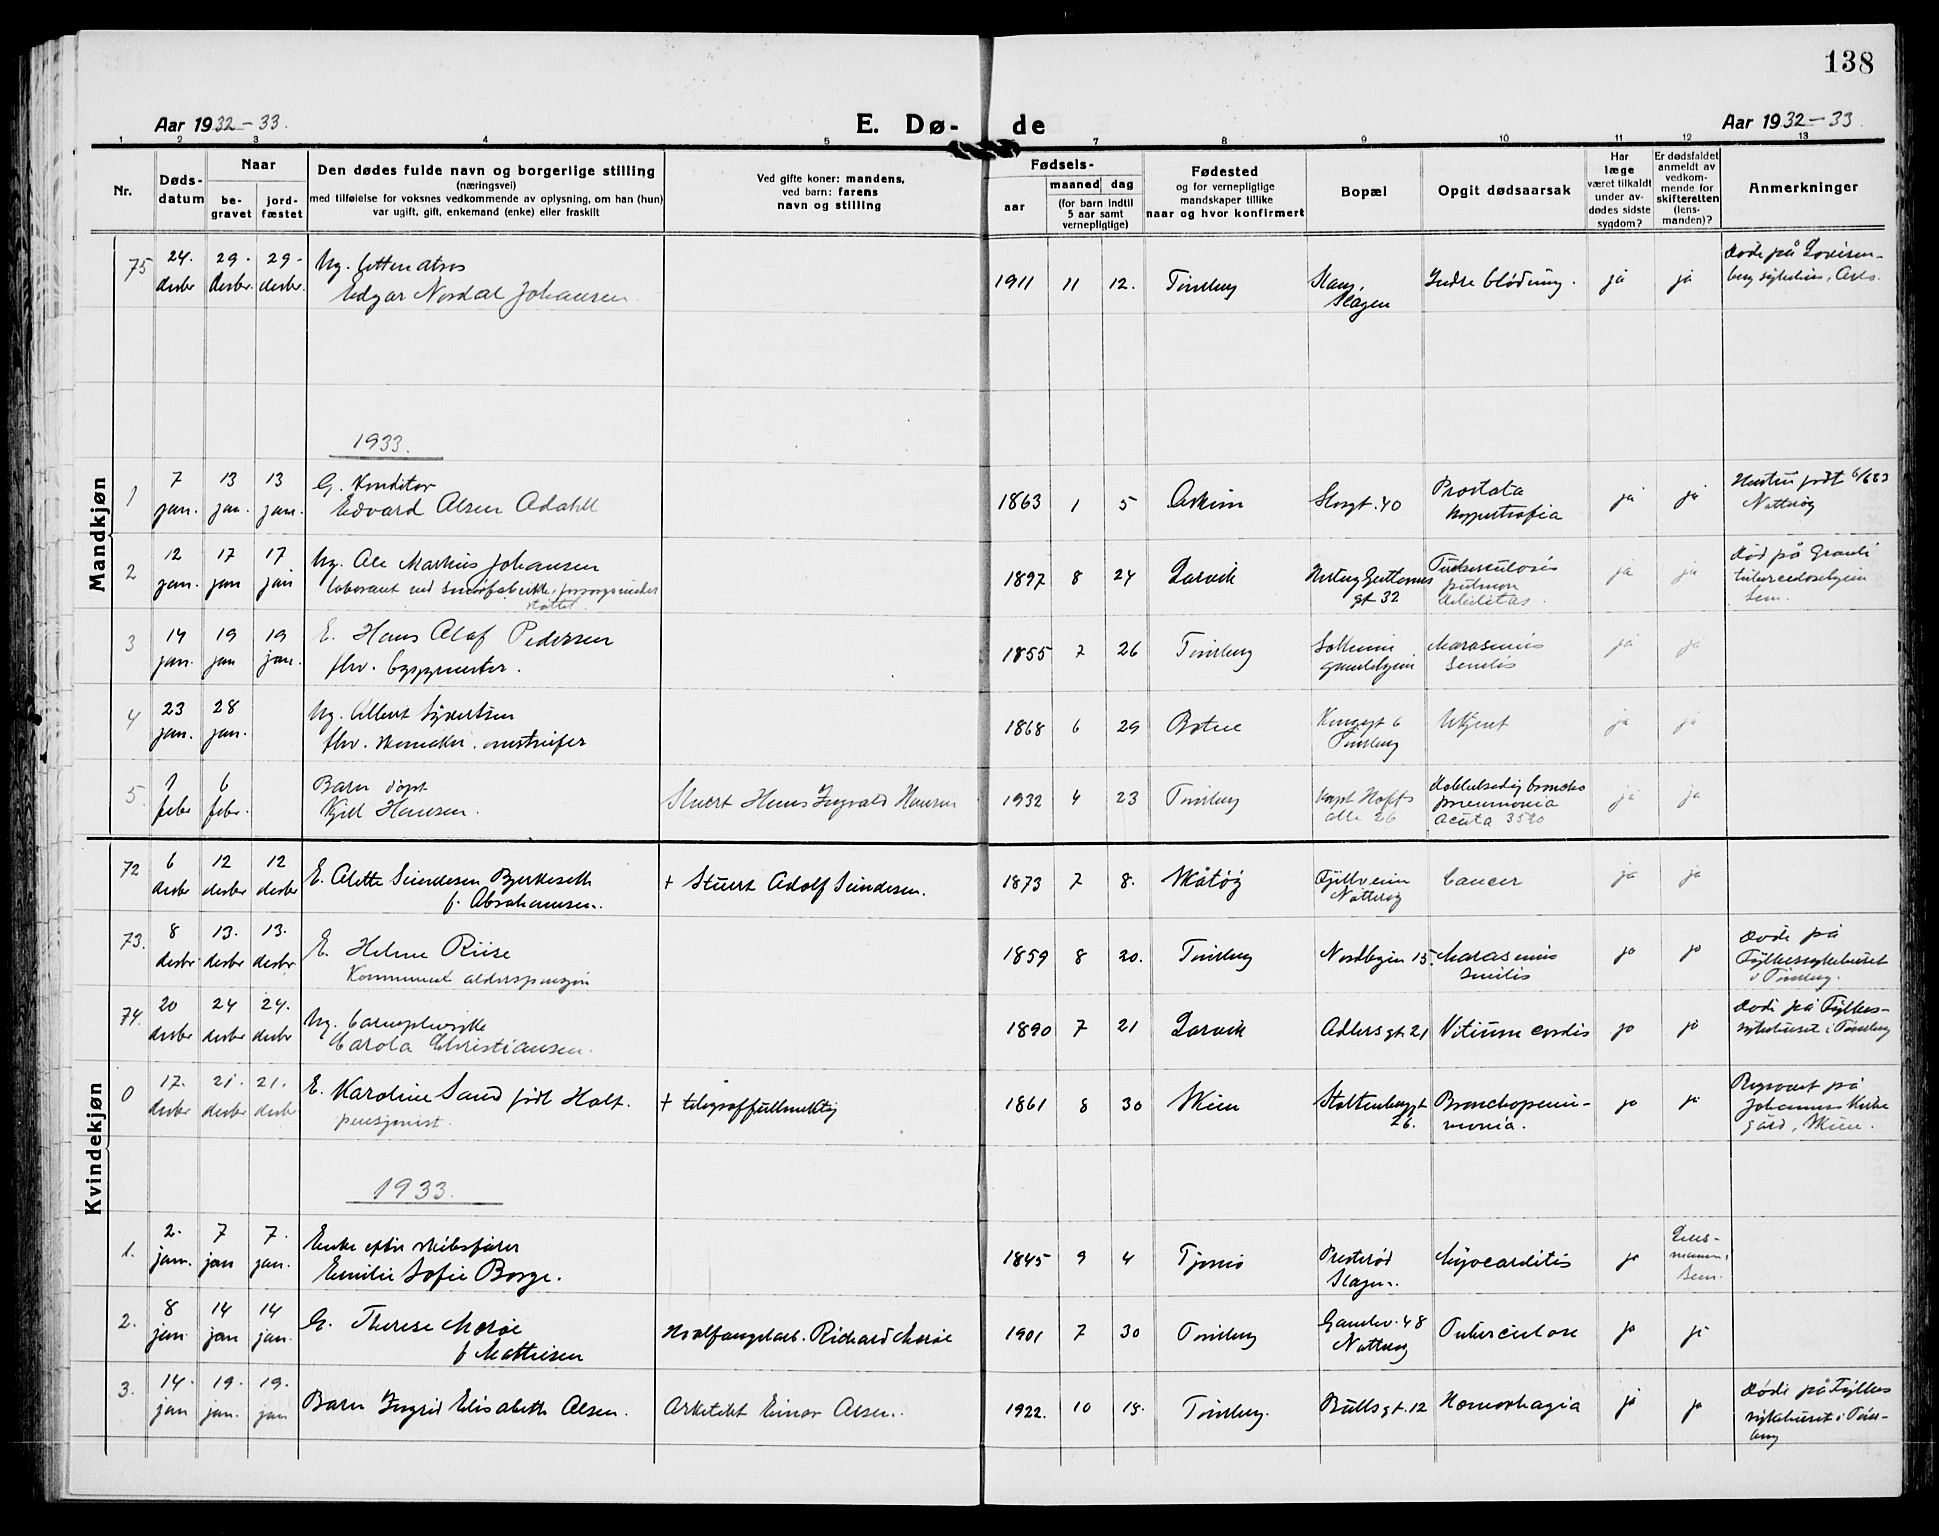 138
Aar 1932-33.
E. Døde
Aar 1932-33.
1 2 3 4 5 7 8 9 10 11 12 13
Nr.
Døds-
datum
Naar
be-
gravet
jord-
fæstet
Den dødes fulde navn og borgerlige stilling
(næringsvei)
med tilføielse for voksnes vedkommende av oplysning, om han (hun)
var ugift, gift, enkemand (enke) eller fraskilt
Ved gifte koner: mandens,
ved barn: farens
navn og stilling
Fødsels-
aar
maaned dag
(for barn indtil
5 aar samt
vernepligtige)
Fødested
og for vernepligtige
mandskaper tillike
naar og hvor konfirmert
Bopæl
Opgit dødsaarsak
Har
læge
været tilkaldt
under av-
dødes sidste
sygdom?
Er dødsfaldet
anmeldt av
vedkom-
mende for
skifteretten
(lens-
manden)?
Anmerkninger
Mandkjøn
75 24. 29. 29. Ug.
desbr desbr. desbr. Edgar Nordal Johansen
1911 11 12. Tønsberg Slagen Indre blødning. ja ja
1933.
1 7 13 13 G. Konditor
jan. jan. jan. Edvard Olsen Adahl
1863 1 5 Askim Storgt. 40 Prostata ja ja
Nøtterøy
2 12 17 17 Ug. Ole Markus Johansen
jan. jan jan
1897 8 24 Larvik gt 32 Tuberculosis ja ja
død på Granli
Sem.
3 14 19 19 E. Hans Olaf Pedersen
jan. jan jan. fhv. byggmester.
1855 7 26 Tønsberg Solheim gamlehjem Marasmus senilis ja ja
4 23 28 Ug. Albert Syvertsen
jan. jan. fhv. skomaker. omstreifer
1868 6 29 Botne Kongsgt 6 Tønsberg Ukjent ja ja
5 1 6 Barn døpt
febr febr. Kjell Hansen.
Stuert Hans Ingvald Hansen
1932 4 23 Tønsberg alle 26 pneumonia acuta ja ja
Kvindekjøn
72 6 12 12 E. Alette Seindesen Bjerkeseth
desbr desbr desbr f. Abrahamsen.
+ Stuert Adolf Seindesen.
1873 7 8. Skåtøy Nøtterøy Cancer ja ja
73. 8 13. 13. E. Helene Riise
desbr desbr desbr Kommunal alderspensjon
1859 8 20. Tønsberg Nordbyen 15. Marasmus senilis ja ja
døde på
Fylkessykehuset
i Tønsberg.
74. 20 24 24. Ug. barnepleierske
desbr desbr desbr Carola Christiansen.
1890 7 21 Larvik Adlersgt. 21 Vitium cordis ja ja
døde på Fylkes-
sykehuset i Tønsberg
0 17. 21. 21. E. Karoline Sand født Holt.
desbr desbr desbr pensjonist.
+ telegraffullmektig
1861 8 30 Skien Stoltenberggt 26. Bronchopneu-
monia. ja ja
Johannes kirke-
gård, Skien.
1933.
1. 2. 7 7. Enke efter skibsfører
jan. jan jan. Emilie Sofie Borge.
1845 9 4 Tjømø Presterød Slagen. Myocarditis ja
Lens-
mannen i
Sem.
2. 8 14 14 G. Therese Morøe
jan jan jan. f Mathisen
Hvalfangstarb. Richard Morøe
1901 7 30 Tønsberg Gamlev. 48 Nøtterøy Tuberculose ja ja
3. 14. 19. 19. Barn Ingrid Elisabeth Olsen.
jan jan. jan
Arkitekt Einar Olsen.
1922. 10 18. Tønsberg. Bullsgt. 12 Hæmorhagia ja ja
døde på Fylkes
sykehuset i Tøns-
berg